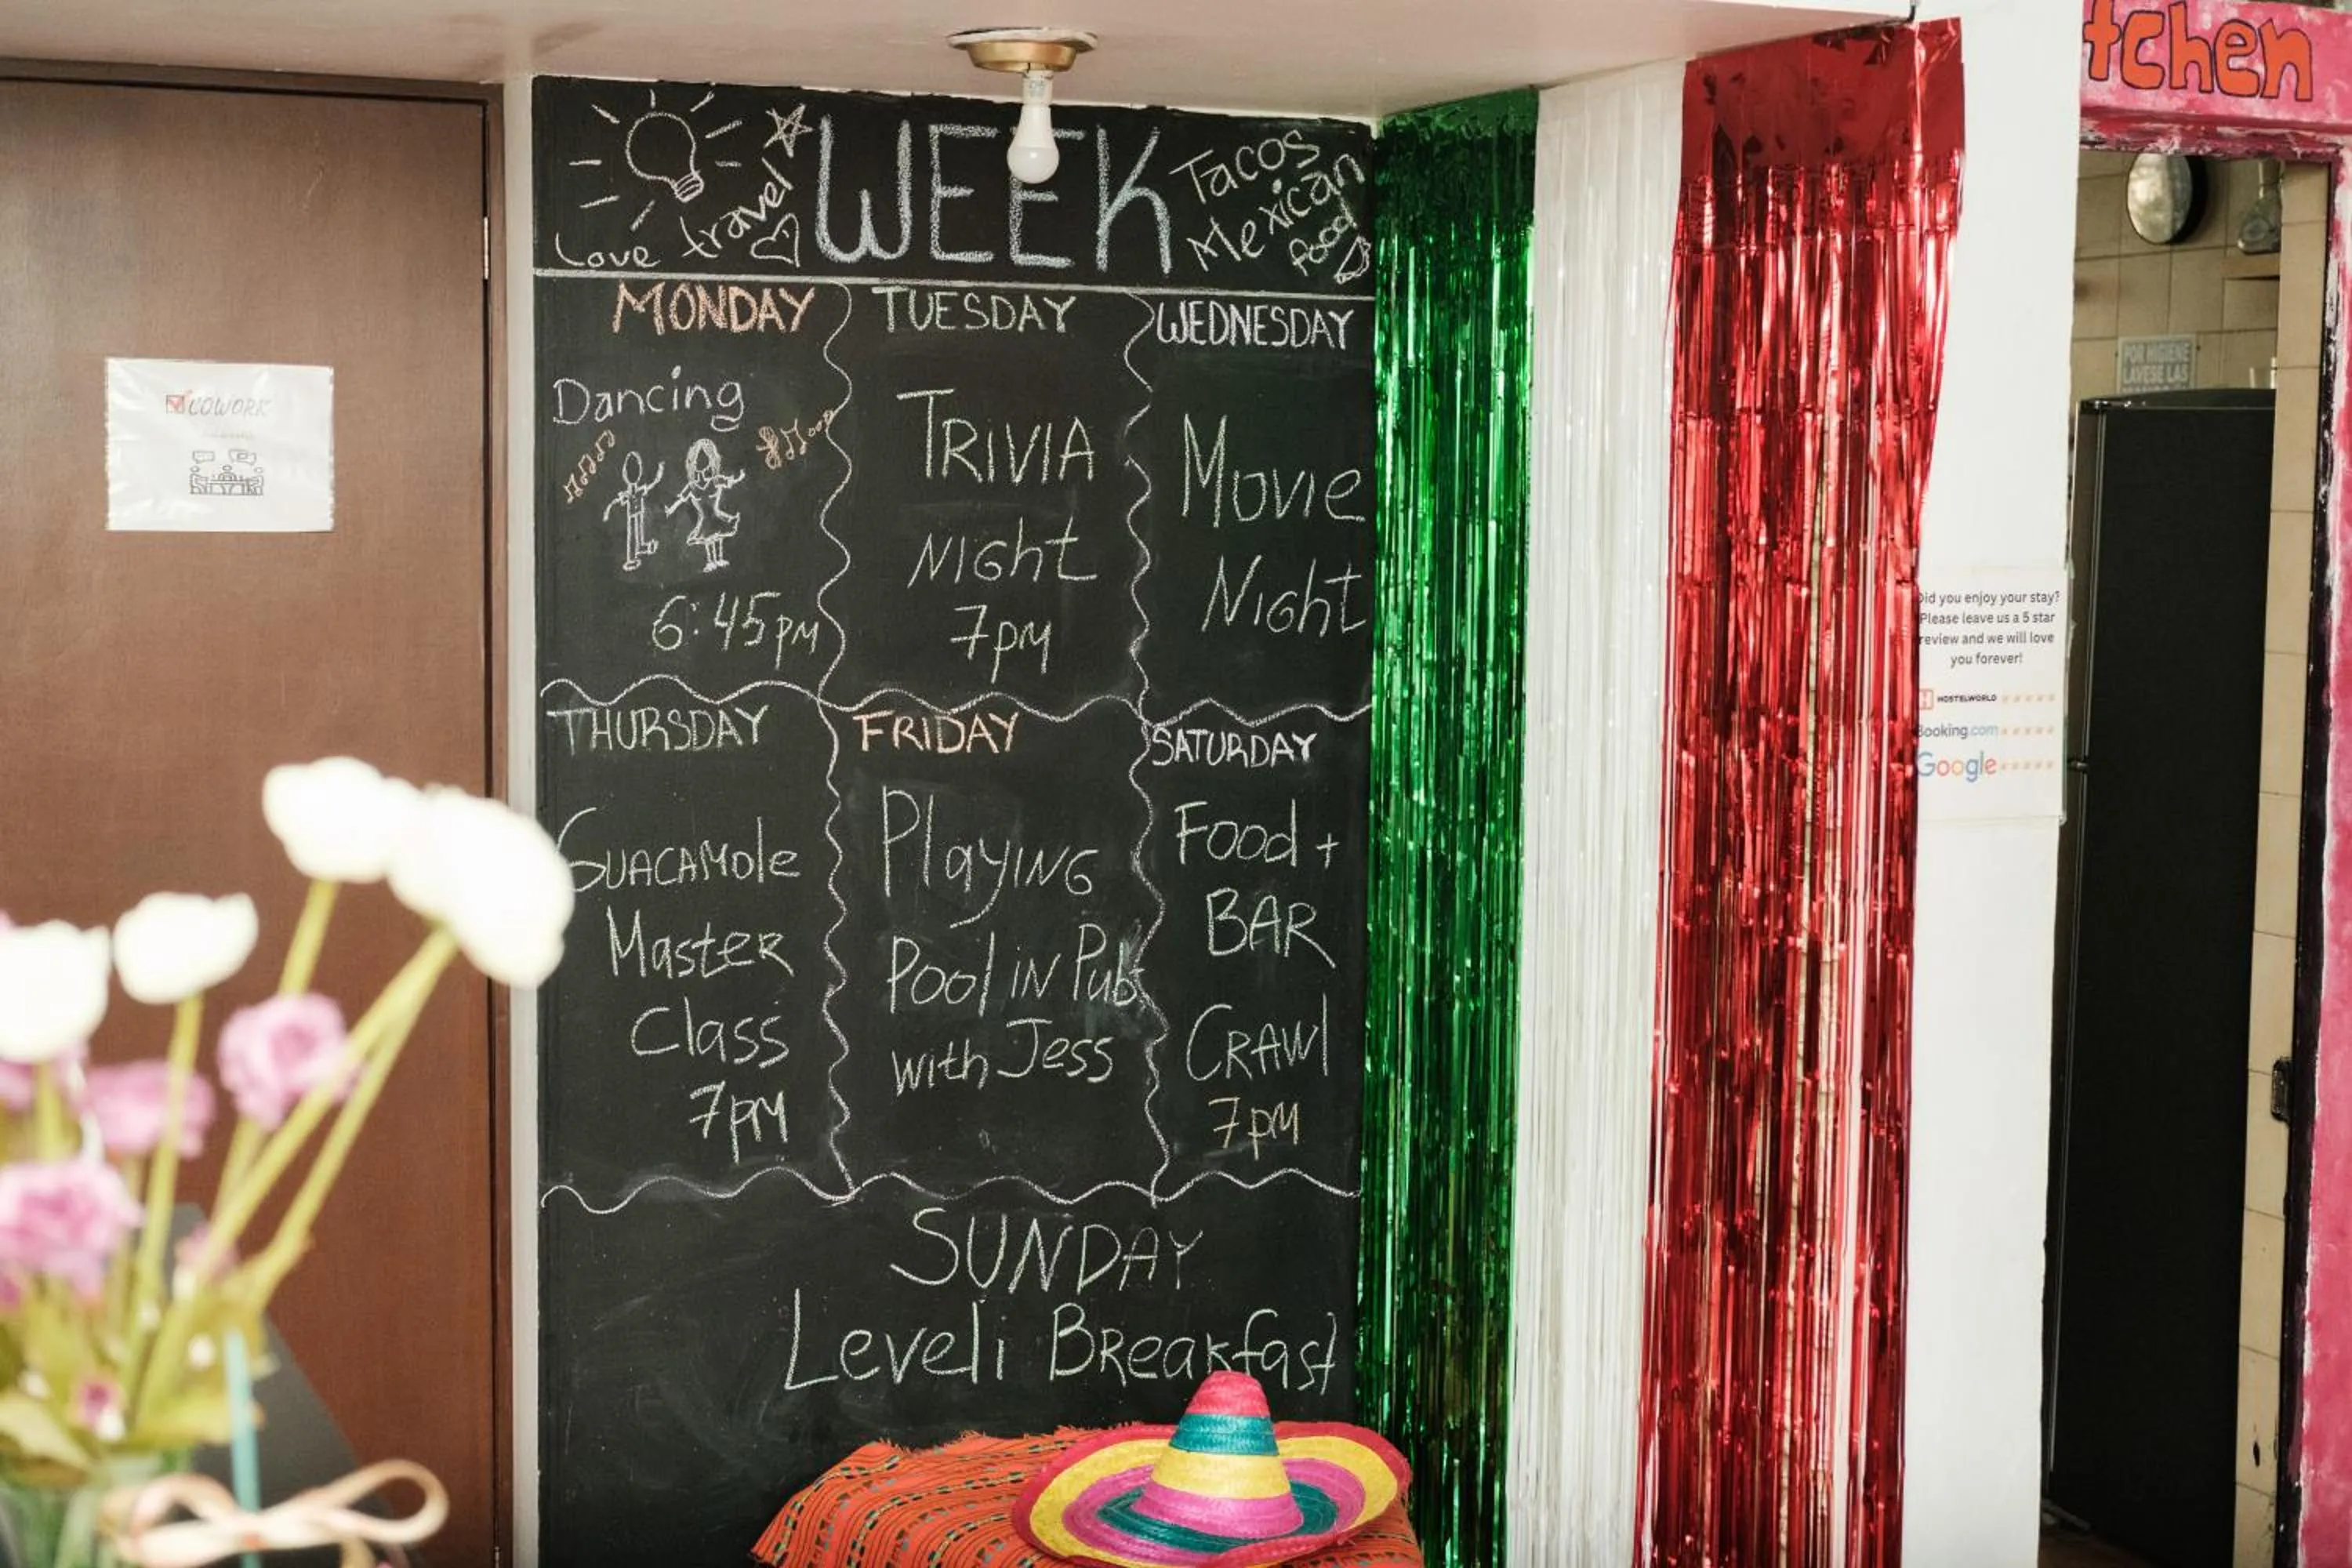 tchen
Love travel
WEEK
Tacos
Mexican
food
MONDAY
Dancing
6:45PM
TUESDAY
TRIVIA
NIGht
7PM
WEDNESDAY
MovIE
NIGht
THURSDAY
GUACAMole
MasteR
Class
7PM
FRIDAY
PlayING
Pool IN Pub
with Jess
SATURDAY
Food +
BAR
CRAWl
7PM
SUNDAY
Level1 BReakfast
COWORK
POR HIGIENE
LAVESE LAS
Did you enjoy your stay?
Please leave us a 5 star
review and we will love
you forever!
HOSTELWORLD
Booking.com
Google